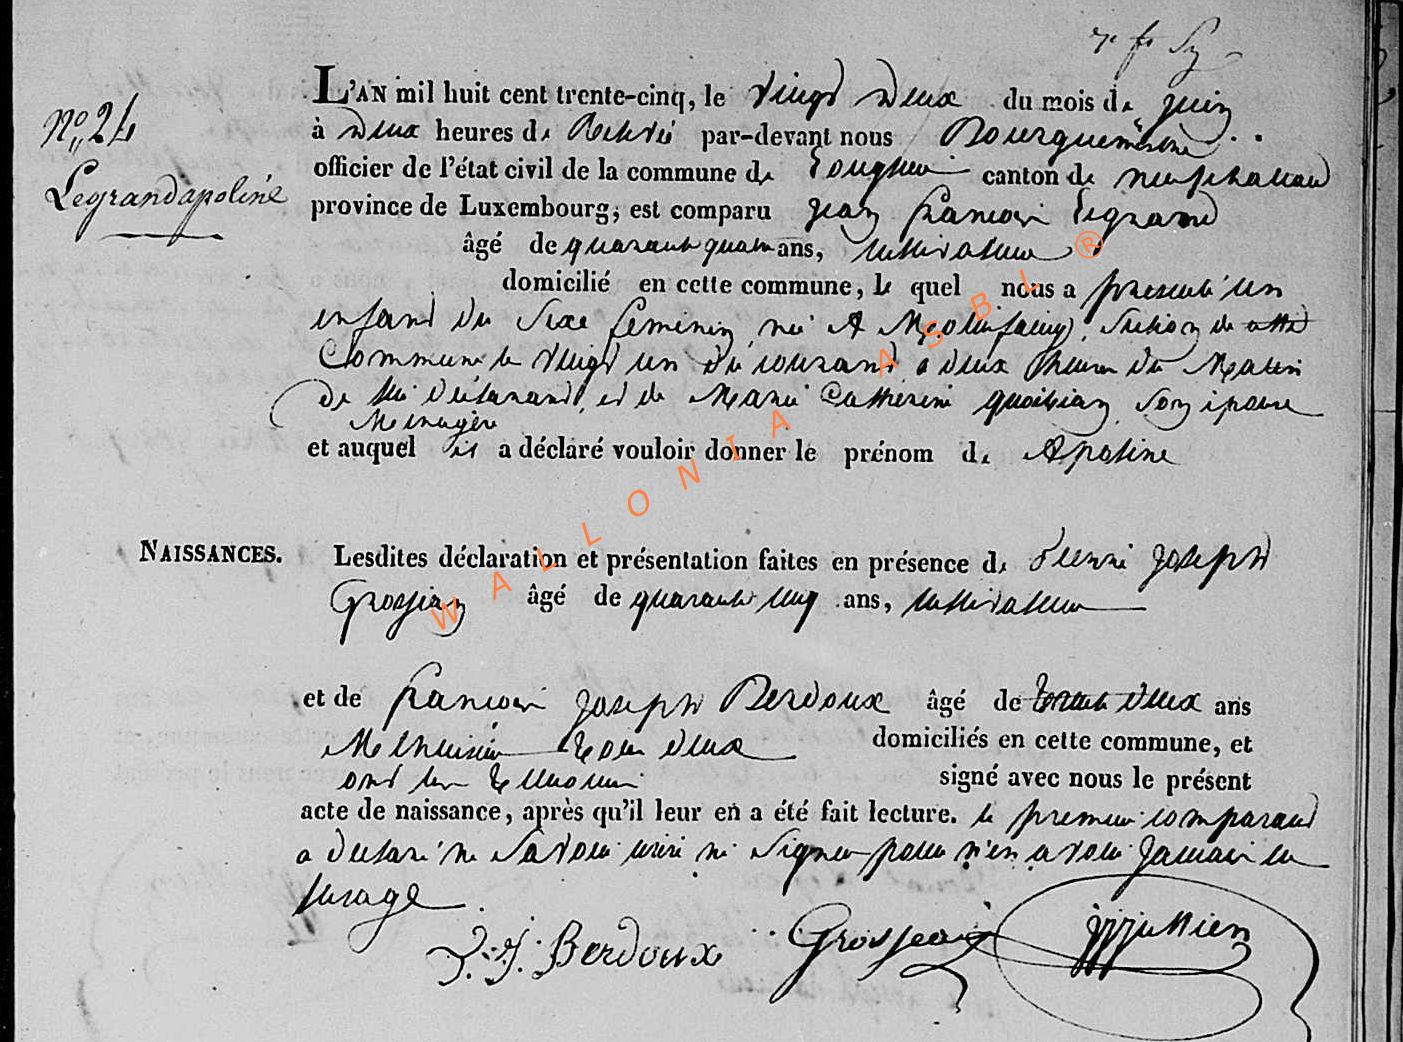 No. 24
Legrand apoline
L'AN mil huit cent trente-cinq, le vingt deux du mois de juin
à deux heures de Relevé par-devant nous Bourguemestre
officier de l'état civil de la commune de Longlier canton de neufchateau
province de Luxembourg; est comparu jean francois Legrand
âgé de quarante quatre ans, cultivateur
domicilié en cette commune, le quel nous a presenté un
enfant du Sexe feminin né A Molinfaing Section de cette
Commune le vingt un du courant à deux heures du Matin
de lui declarant, et de Marie Catherine son epouse
Menagère
et auquel il a déclaré vouloir donner le prénom de Apoline
NAISSANCES. Lesdites déclaration et présentation faites en présence de henri joseph
Grosjean âgé de quarante cinq ans, cultivateur
et de francois joseph Berdoux âgé de trente deux ans
Menuisier tous deux domiciliés en cette commune, et
ont les temoins signé avec nous le présent
acte de naissance, après qu'il leur en a été fait lecture. le premier comparant
a declaré ne Savoir ecrire ni Signer pour n'en avoir jamais eu
lusage
F. J. Berdoux Grosjean
WALLONIA ASBL ®